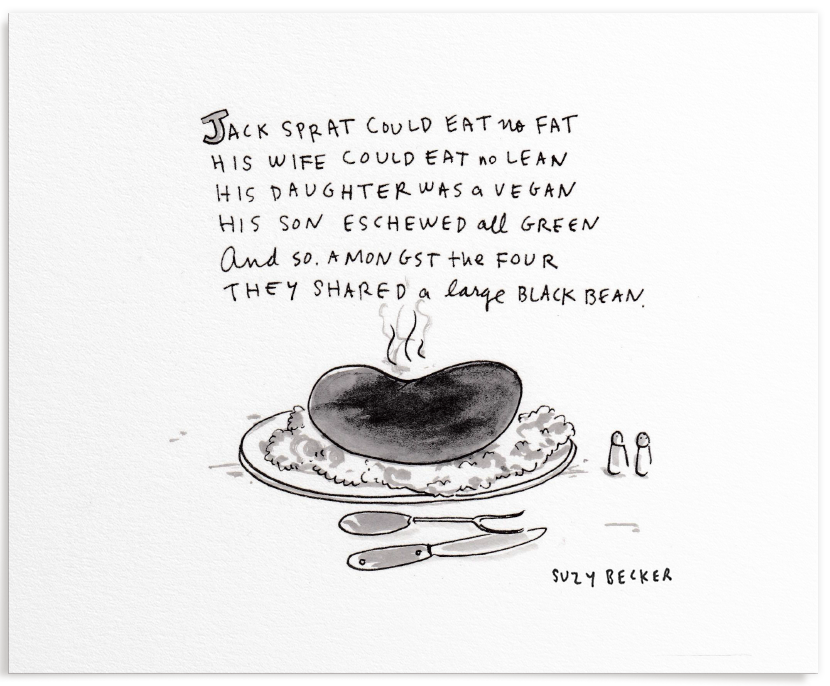 JACK SPRAT COULD EAT no FAT
HIS WIFE COULD EAT no LEAN
HIS DAUGHTER WAS a VEGAN
HIS SON ESCHEWED all GREEN
And so. AMONGST the FOUR
THEY SHARED a large BLACK BEAN.
SUZY BECKER